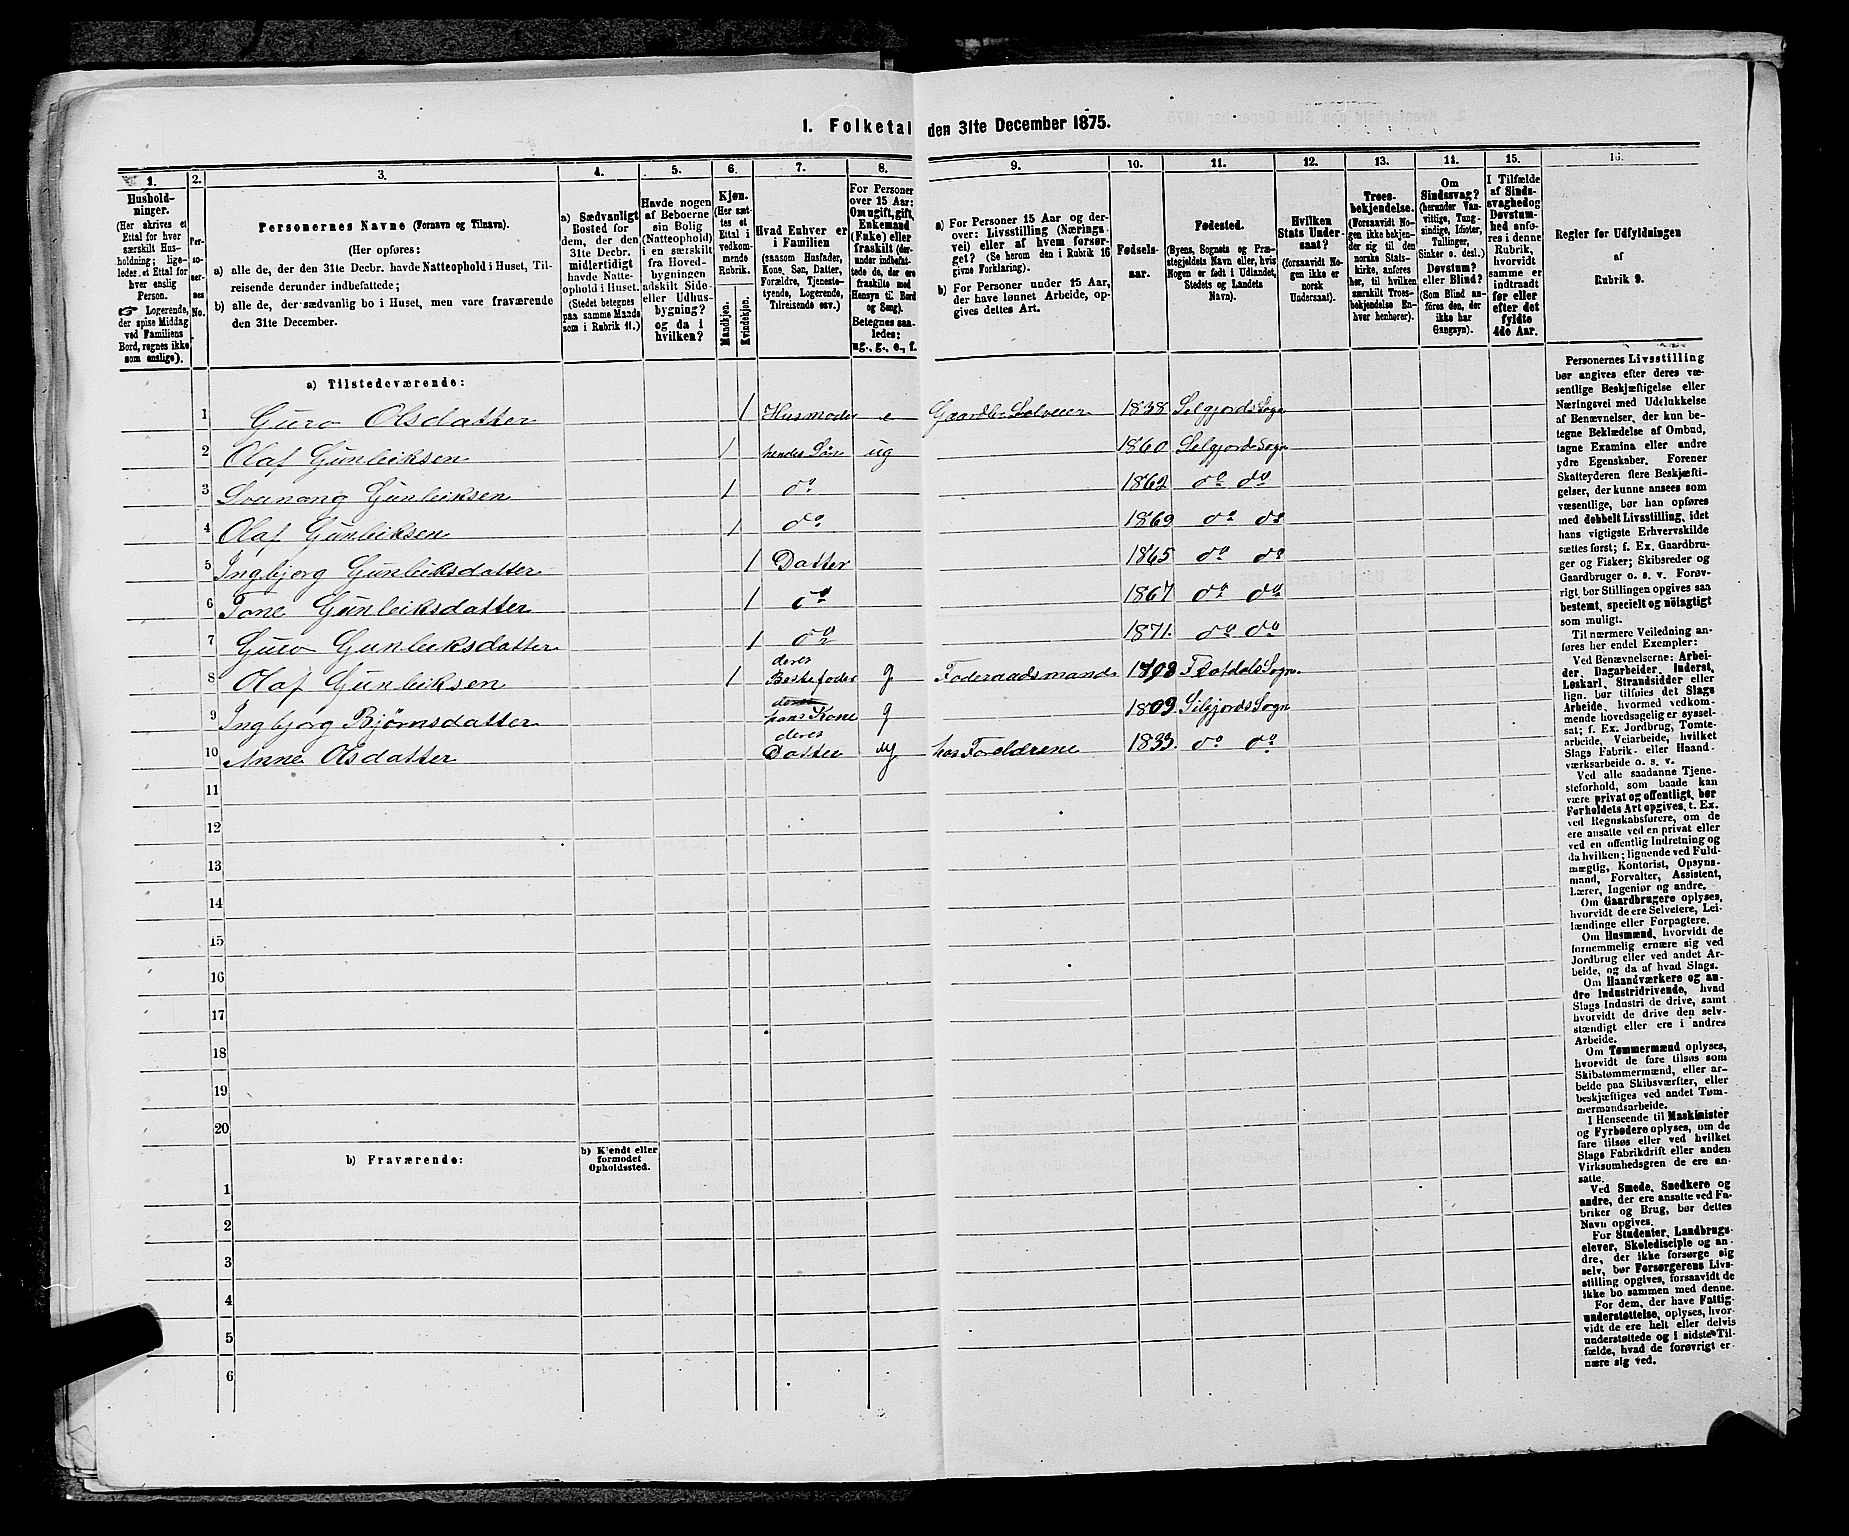 1. Folketal den 31te December 1875.
1. 2. 3. 4. 5. 6. 7. 8. 9. 10. 11. 12. 13. 14. 15. 16.
Hushold-
ninger.
(Her skrives et
Ettal for hver
særskilt Hus-
holdning; lige-
ledes et Ettal for
hver enslig
Person.
☞ Logerende,
der spise Middag
ved Familiens
Bord, regnes ikke
som enslige).
Per-
so-
ner-
nes
No.
Personernes Navne (Fornavn og Tilnavn).
(Her opføres:
a) alle de, der den 31te Decbr. havde Natteophold i Huset, Til-
reisende derunder indbefattede;
b) alle de, der sædvanlig bo i Huset, men vare fraværende
den 31te December.
a) Sædvanligt
Bosted for
dem, der den
31te Decbr.
midlertidigt
havde Natte-
ophold i Huset.
(Stedet betegnes
paa samme Maade
som i Rubrik 11.)
Havde nogen
af Beboerne
sin Bolig
(Natteophold)
i en særskilt
fra Hoved-
bygningen
adskilt Side-
eller Udhus-
bygning?
og da i
hvilken?
Kjøn.
(Her sæt-
tes et
Ettal i
vedkom-
mende
Rubrik.
Mandkjøn.
Kvindekjøn.
Hvad Enhver er
i Familien
(saasom Husfader,
Kone, Søn, Datter,
Forældre, Tjeneste-
tyende, Logerende,
Tilreisende osv.)
For Personer
over 15 Aar:
Om ugift, gift,
Enkemand
(Enke) eller
fraskilt (der-
under indbefat-
tede de, der ere
fraskilte med
Hensyn til Bord
og Seng).
Betegnes saa-
ledes:
ug., g., e., f.
a) For Personer 15 Aar og der-
over: Livsstilling (Nærings-
vei) eller af hvem forsør-
get? (Se herom den i Rubrik 16
givne Forklaring).
b) For Personer under 15 Aar,
der have lønnet Arbeide, op-
gives dettes Art.
Fødsels-
aar.
Fødested.
(Byens, Sognets og Præ-
stegjeldets Navn eller, hvis
Nogen er født i Udlandet,
Stedets og Landets
Navn).
Hvilken
Stats Under-
saat?
(forsaavidt No-
gen ikke er
norsk
Undersaat).
Troes-
bekjendelse.
(Forsaavidt No-
gen ikke bekjen-
der sig til den
norske Stats-
kirke, anføres
her, til hvilken
særskilt Troes-
bekjendelse En-
hver henhører).
Om
Sindssvag?
(herunder Van-
vittige, Tung-
sindige, Idioter,
Tullinger,
Sinker o. desl.)
Døvstum?
eller Blind?
(Som Blind an-
føres den, der
ikke har
Gangsyn).
I Tilfælde
af Sinds-
svaghed og
Døvstum-
hed anfø-
res i denne
Rubrik,
hvorvidt
samme er
indtraadt
før eller
efter det
fyldte
4de Aar.
Regler for Udfyldningen
af
Rubrik 9.
a) Tilstedeværende:
1 Guro Olsdatter 1 Husmoder e Gaardbr Selveier 1838 Selgjords Sogn
2 Olaf Gunleiksen 1 hendes Søn ug 1860 Selgjords Sogn
3 Svanang Gunleiksen 1 do 1862 do do
4 Olaf Gunleiksen 1 do 1869 do do
5 Ingbjorg Gunleiksdatter 1 Datter 1865 do do
6 Tone Gunleiksdatter 1 do 1867 do do
7 Guro Gunleiksdatter 1 do 1871. do do
8 Olaf Gunleiksen 1 deres Bestefader g Føderaadsmand Sogn
9 Ingbjørg Bjørnsdatter hans Kone g 1809. Selgjords Sogn
10 Anne Olsdatter deres Datter ug hos Forældrene 1833. do do
11
12
13
14
15
16
17
18
19
20
b) Fraværende:
b) Kjendt eller
formodet
Opholdssted.
1
2
3
4
5
6
Personernes Livsstilling
bør angives efter deres væ-
sentlige Beskjæftigelse eller
Næringsvei med Udelukkelse
af Benævnelser, der kun be-
tegne Beklædelse af Ombud,
tagne Examina eller andre
ydre Egenskaber. Forener
Skatteyderen flere Beskjæfti-
gelser, der kunne ansees som
væsentlige, bør han opføres
med dobbelt Livsstilling, idet
hans vigtigste Erhvervskilde
sættes først; f. Ex. Gaardbru-
ger og Fisker; Skibsreder og
Gaardbruger o. s. v. Forøv-
rigt bør Stillingen opgives saa
bestemt, specielt og nöiagtigt
som muligt.
Til nærmere Veiledning an-
føres her endel Exempler:
Ved Benævnelserne: Arbei-
der, Dagarbeider, Inderst,
Løskarl, Strandsidder eller
lign. bør tilføies det Slags
Arbeide, hvormed vedkom-
mende hovedsagelig er syssel-
sat; f. Ex. Jordbrug, Tomte-
arbeide, Veiarbeide, hvilket
Slags Fabrik- eller Haand-
værksarbeide o. s. v.
Ved alle saadanne Tjene-
steforhold, som baade kan
være privat og offentligt, bør
Forholdets Art opgives, t. Ex.
ved Regnskabsførere, om de
ere ansatte ved en privat eller
ved en offentlig Indretning og
da hvilken; lignende ved Fuld-
mægtig, Kontorist, Opsyns-
mand, Forvalter, Assistent,
Lærer, Ingeniør og andre.
Om Gaardbrugere oplyses,
hvorvidt de ere Selveiere, Lei-
lændinge eller Forpagtere.
Om Husmænd, hvorvidt de
fornemmelig ernære sig ved
Jordbrug eller ved andet Ar-
beide, og da af hvad Slags.
Om Haandværkere og an-
dre Industridrivende, hvad
Slags Industri de drive, samt
hvorvidt de drive den selv-
stændigt eller ere i andres
Arbeide.
Om Tømmermænd oplyses,
hvorvidt de fare tilsøs som
Skibstømmermænd, eller ar-
beide paa Skibsværfter, eller
beskjæftiges ved andet Tøm-
mermandsarbeide.
I Henseende til Maskinister
og Fyrbødere oplyses, om de
fare tilsøs eller ved hvilket
Slags Fabrikdrift eller anden
Virksomhedsgren de ere an-
satte.
Ved Smede, Snedkere og
andre, der ere ansatte ved Fa-
briker og Brug, bør dettes
Navn opgives.
For Studenter, Landbrugs-
elever, Skoledisciple og an-
dre, der ikke forsørge sig
selv, bør Forsørgerens Livs-
stilling opgives, forsaavidt de
ikke bo sammen med denne.
For dem, der have Fattig-
understøttelse, oplyses, hvor-
vidt de ere helt eller delvis
understøttede og i sidste Til-
fælde, hvad de forøvrigt er-
nære sig ved.